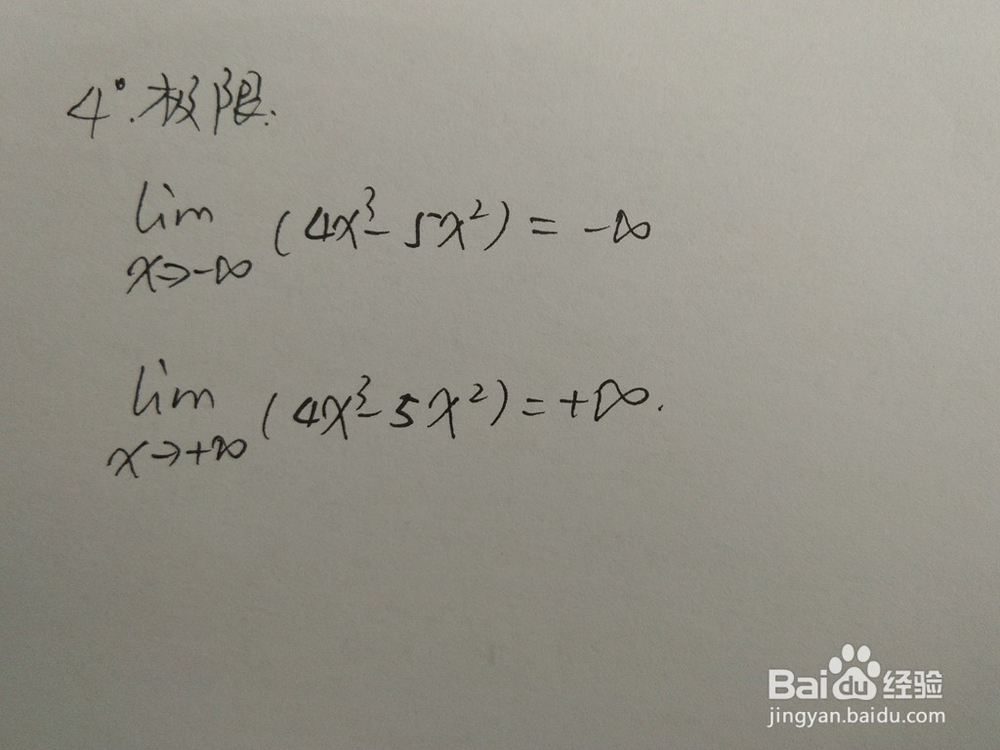 4°.极限.
lim (4x³-5x²) = -∞
x→-∞
lim (4x³-5x²) = +∞.
x→+∞
Baidu经验
jingyan.baidu.com